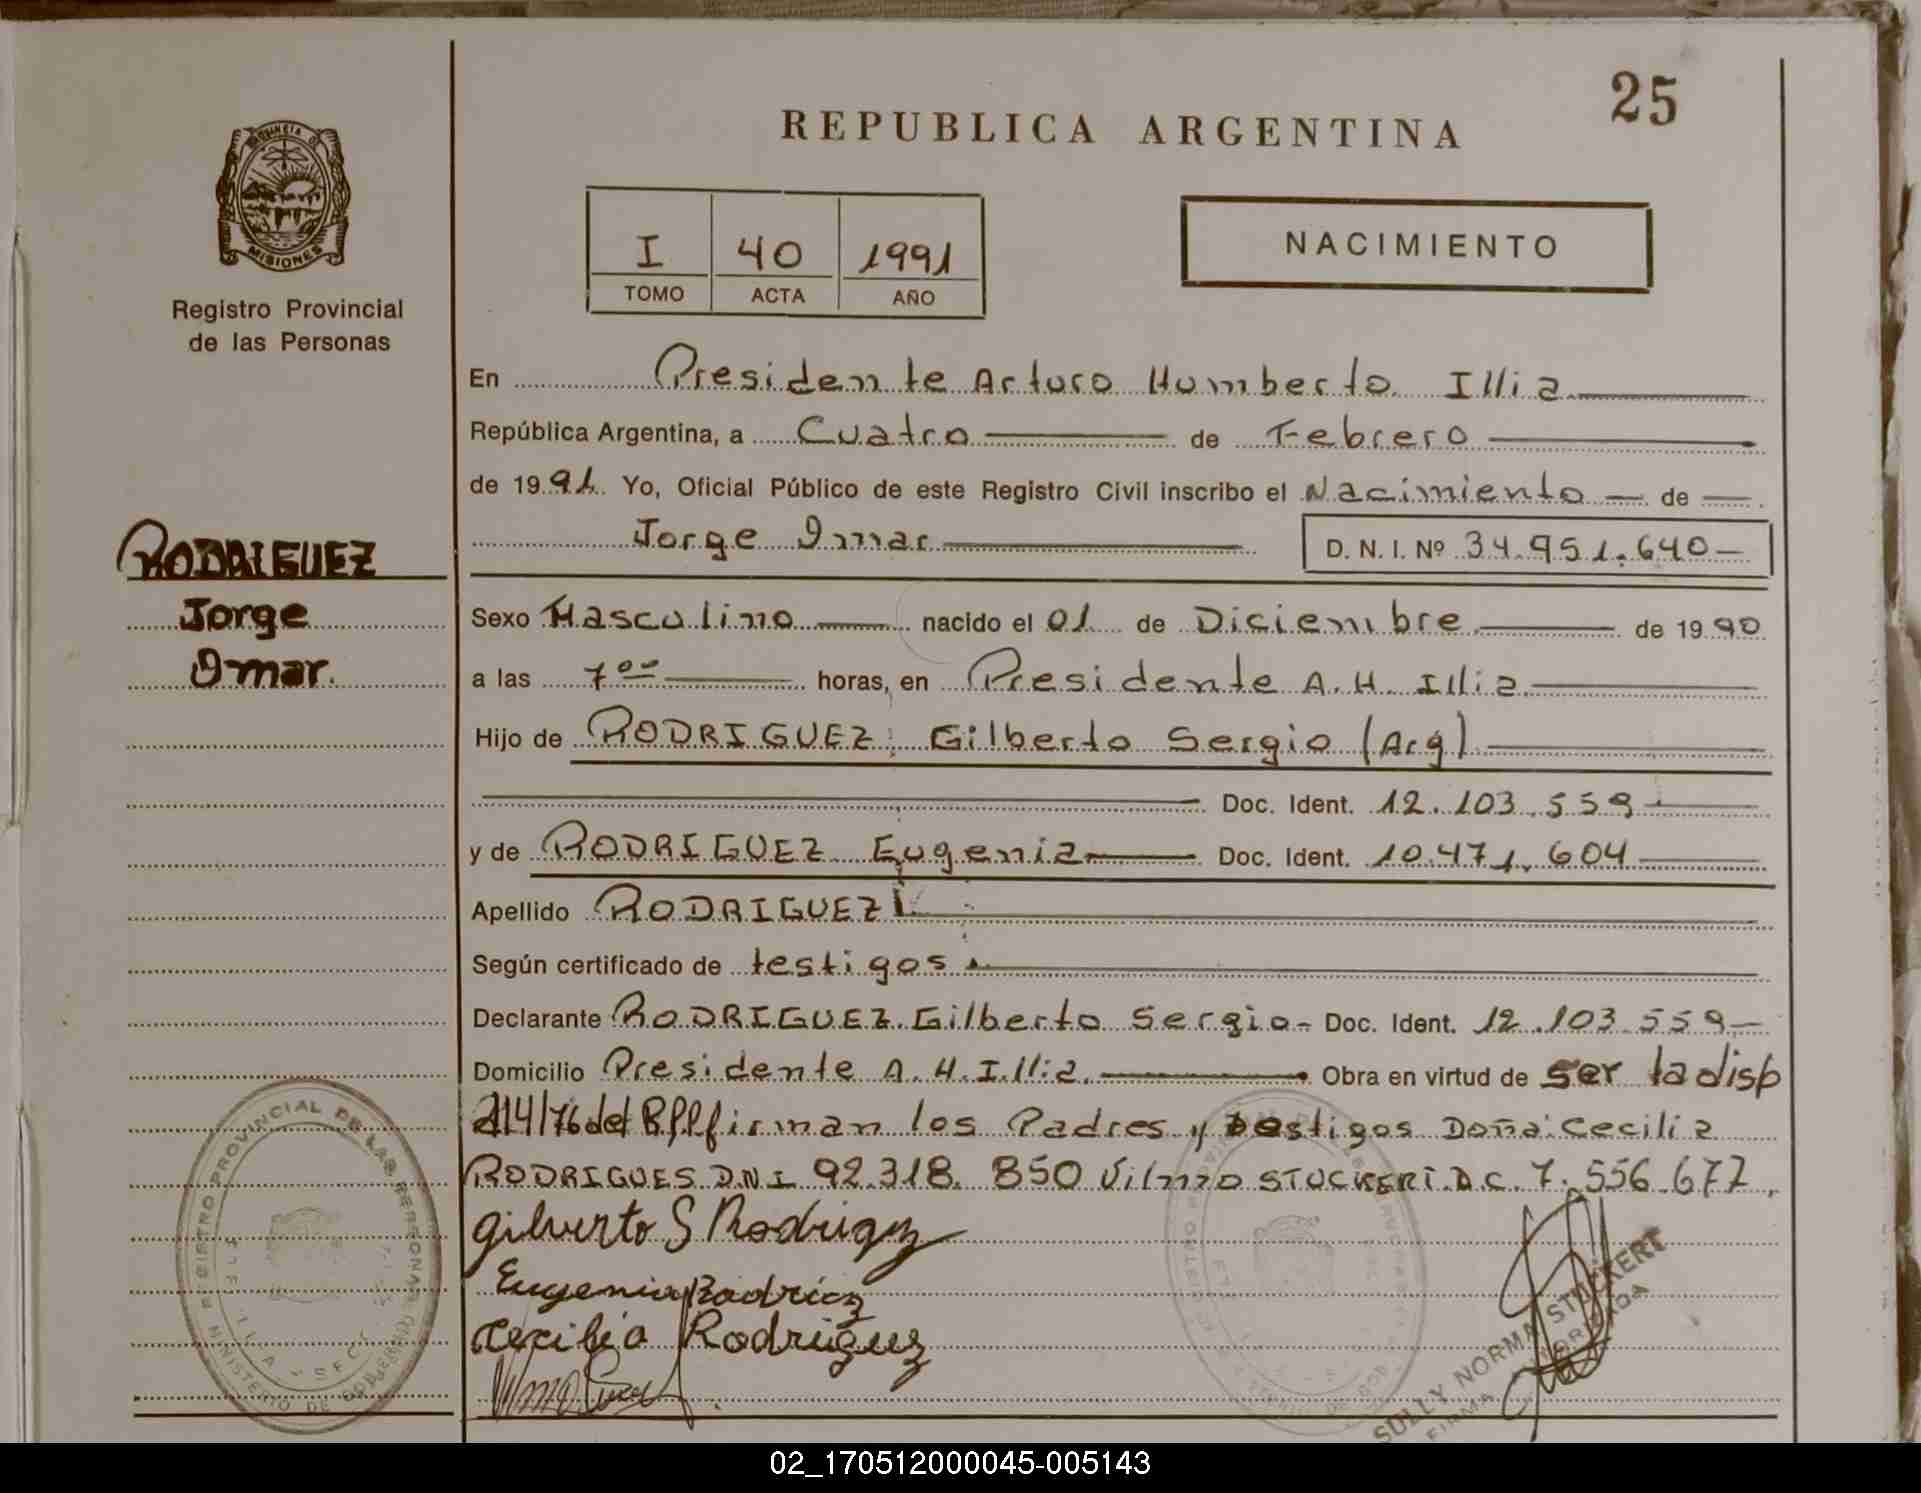 25
REPUBLICA ARGENTINA
PROVINCIA DE
MISIONES
Registro Provincial
de las Personas
I 40 1991
TOMO ACTA AÑO
NACIMIENTO
En Presidente Arturo Humberto Illia
República Argentina, a Cuatro de Febrero
de 1991 Yo, Oficial Público de este Registro Civil inscribo el Nacimiento de
Jorge Omar D. N. I. Nº 34.951.640
RODRIGUEZ
Jorge
Omar.
Sexo Masculino nacido el 01 de Diciembre de 1990
a las 7 00 horas, en Presidente A. H. Illia
Hijo de RODRIGUEZ Gilberto Sergio (Arg)
Doc. Ident. 12.103.559
y de RODRIGUEZ Eugenia Doc. Ident. 10.471.604
Apellido RODRIGUEZ
Según certificado de testigos
Declarante RODRIGUEZ Gilberto Sergio Doc. Ident. 12.103.559
Domicilio Presidente A. H. Illia. Obra en virtud de ser la disp
214/76 del R.P.P firman los Padres y testigos Doña Cecilia
RODRIGUES D.N.I 92.318.850 Vilmo STUCKERT D.C. 7.556.677
gilverto S Rodriguz
Eugenia Rodricz
Cecilia Rodriguez
REGISTRO PROVINCIAL DE LAS PERSONAS
MINISTERIO DE GOBIERNO
SULLY NORMA STUCKERT
FIRMA AUTORIZADA
02_170512000045-005143